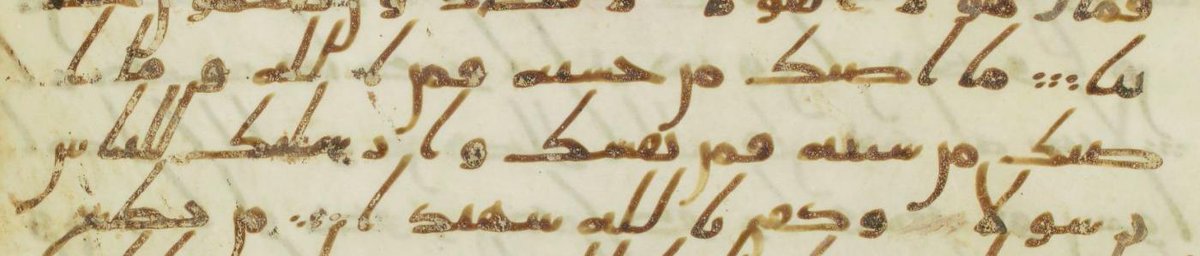 فمال هولا
يثا ما اصبك من حسنه فمن الله و ما ا
صبك من سيه فمن نفسك و ا رسلنك للناس
رسولا وكفى با لله شهيدا من يطع